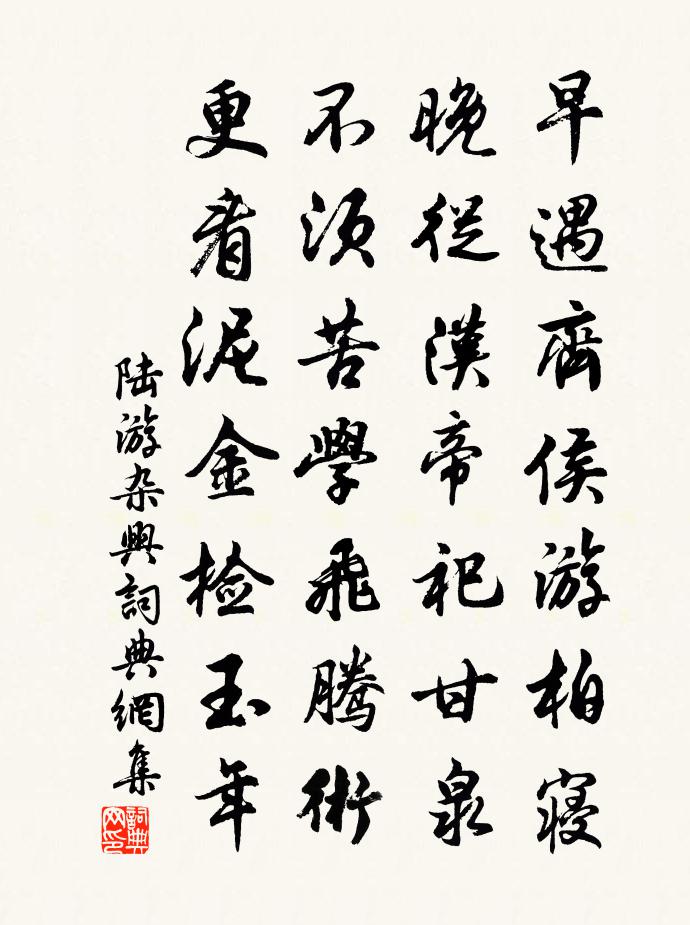 早遇齊侯游柏寝
晚從漢帝祀甘泉
不須苦學飛騰術
更看泥金檢玉年
陆游杂興詞典網集
詞典网印